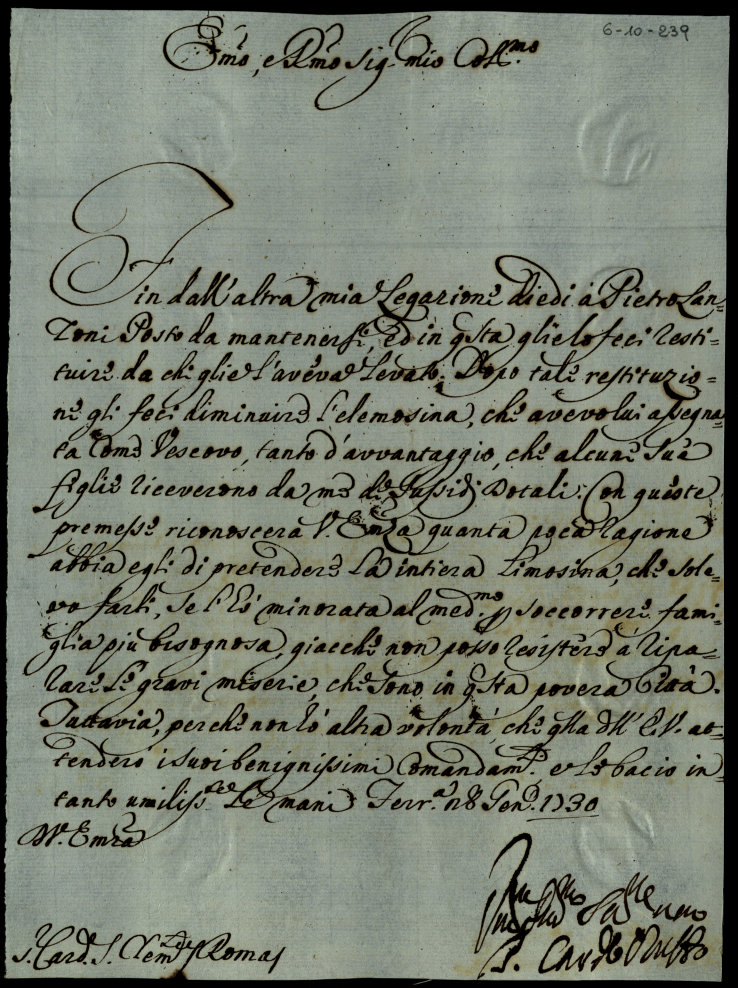 6-10-239
Emo, e Rmo Sig. mio Col.mo
Fin dall'altra mia Legazione diedi à Pietro Lan=
zoni Posto da mantenersi, ed in qsta glielo feci resti=
tuire da chi glie l'aveva levato. Dopo tale restituzio=
ne gli feci diminuire l'elemosina, che avevo lui assegna=
ta come Vescovo, tanto d'avvantaggio, che alcune Sue
figlie riceverono da me de Sussidj Dotali. Con queste
premesse riconoscerà V. Emza quanta poca ragione
abbia egli di pretendere la intiera limosina, che sole=
vo farli, se l'hò minorata al med.mo p soccorrere fami=
glia più bisognosa, giacchè non posso resistere à ripa=
rare le gravi miserie, che sono in qsta povera Città.
Tuttavia, perche non hò altra volontà, che qlla dell' E.V. at=
tenderò i suoi benignissimi Comandam.ti e le bacio in=
tanto umiliss.te le mani Ferr.a 18 Gen. 1730
D V. Emza
S. Card. S. Clem.te Roma
T. Card. Ruffo